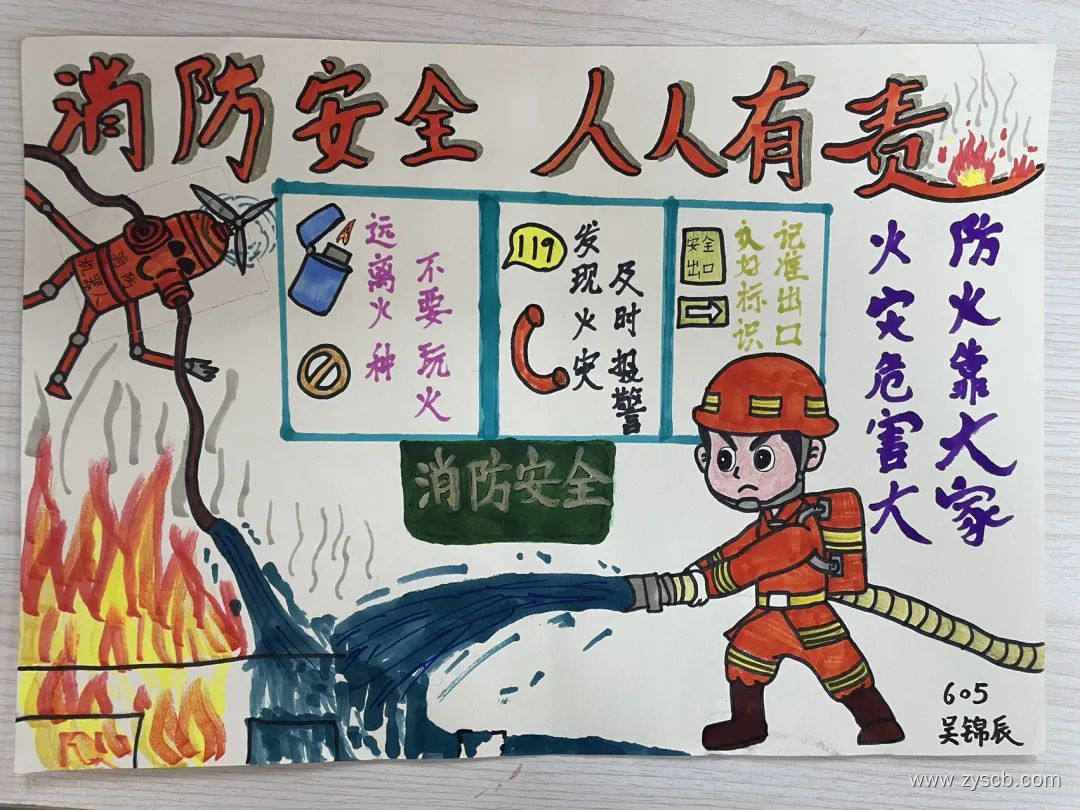 消防安全 人人有责
消防
机器人
远离火种
不要玩火
119
发现火灾
及时报警
安全
出口
记准出口
次好标识
防火靠大家
火灾危害大
消防安全
605
吴锦辰
www.zyscb.com